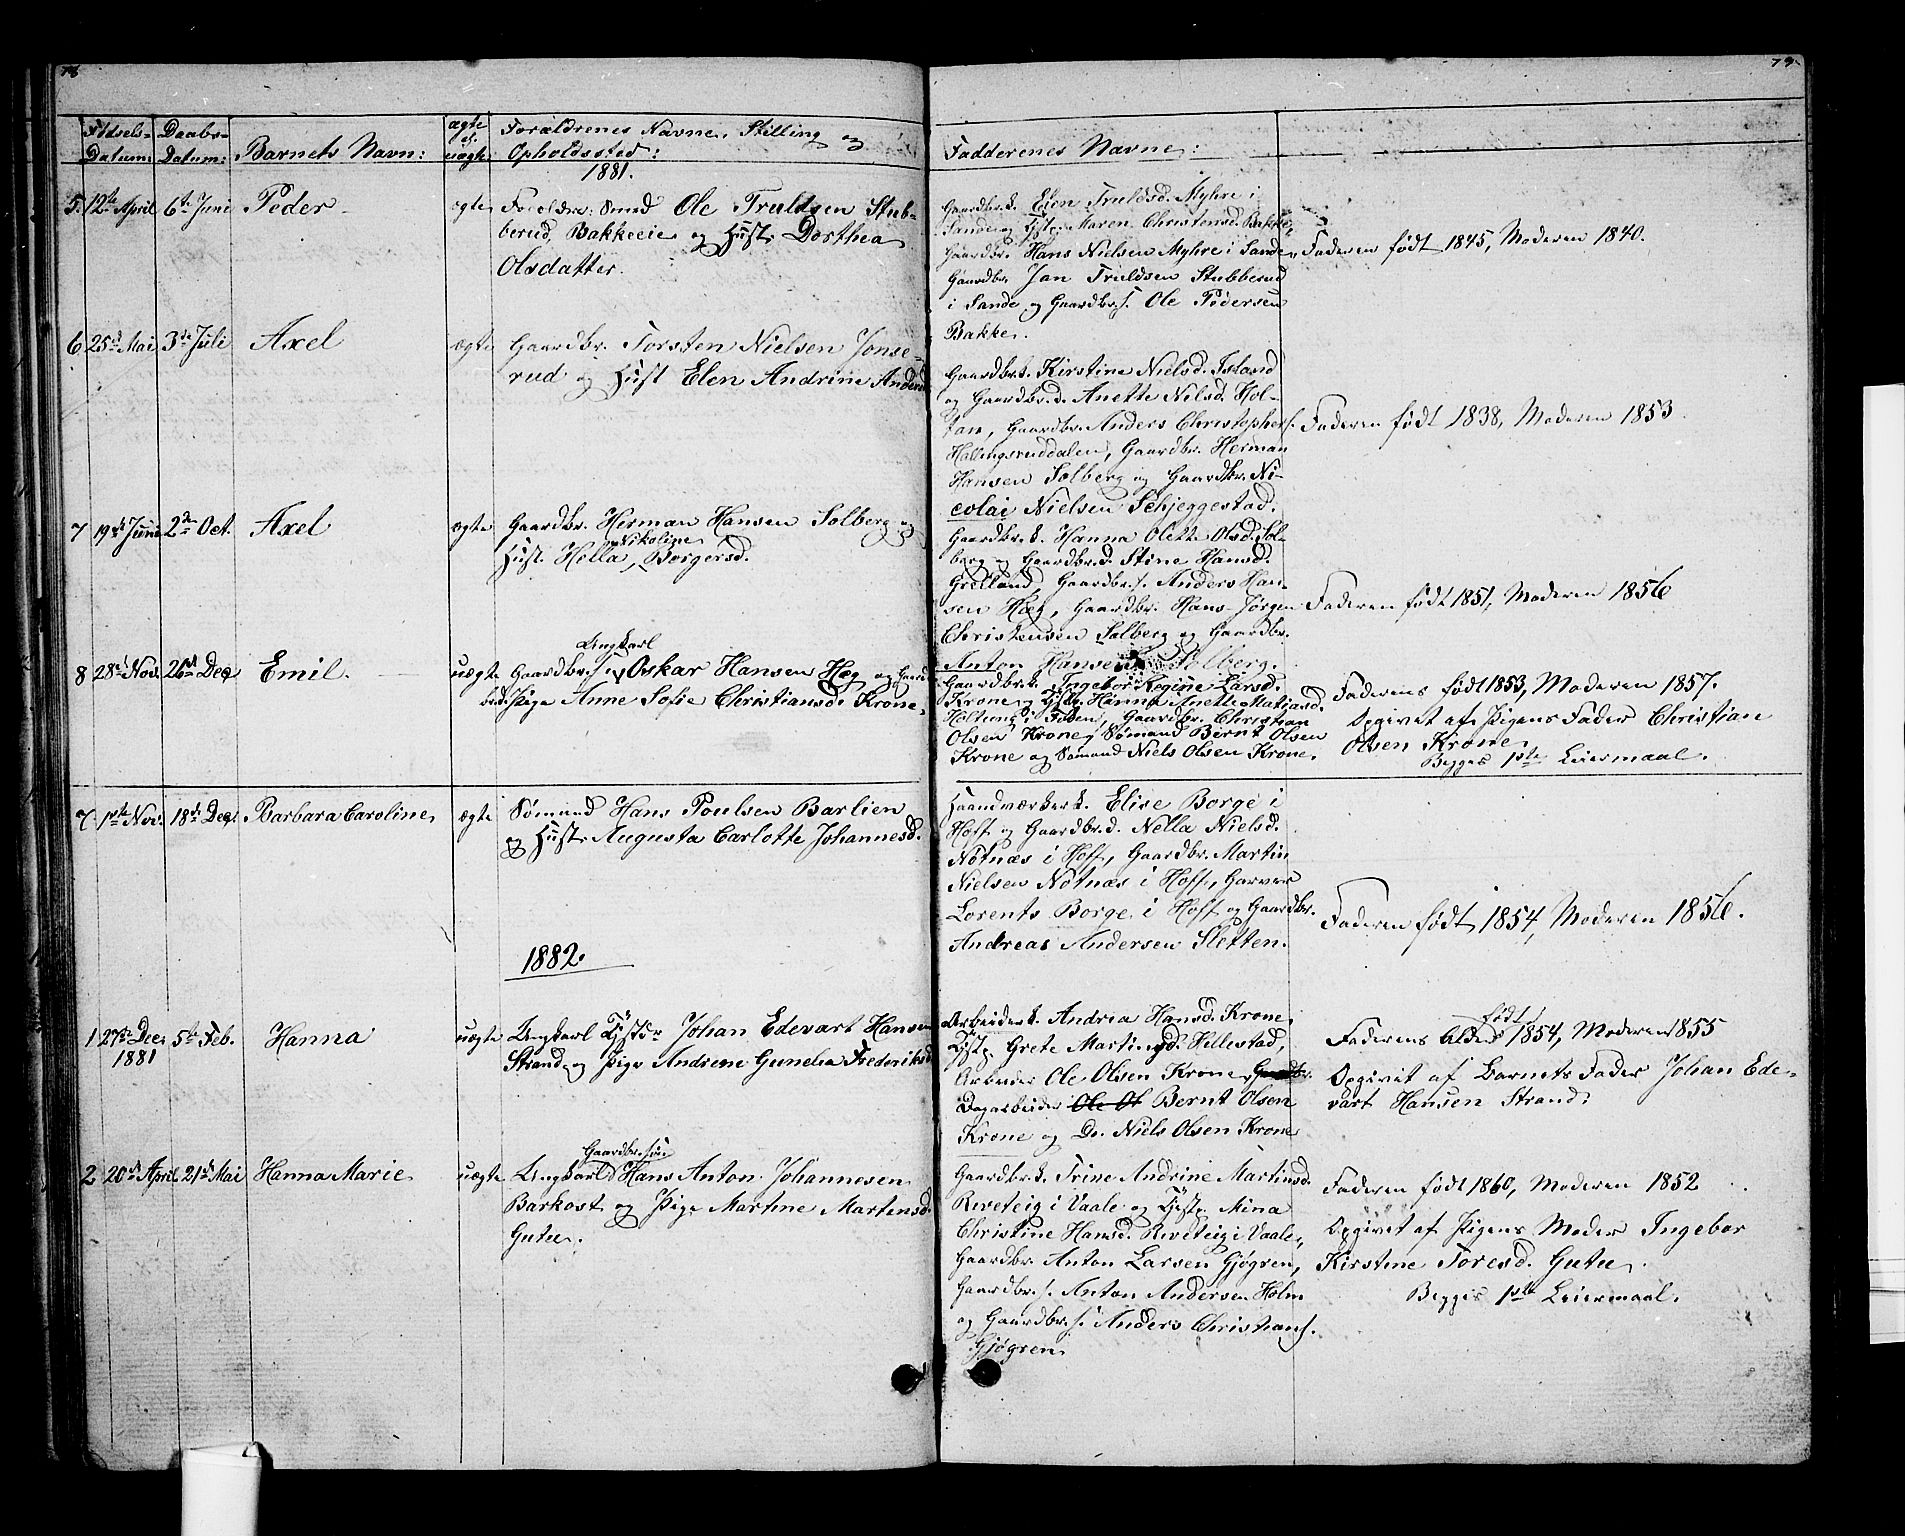 78
79
Fødsels-
Datum:
Daabs-
Datum:
Barnets Navn:
ægte
el.
uægte
Forældrenes Navne, Stilling og
Opholdssted:
Fadderenes Navne:
1881.
5. 12te April 6te Juni Peder ægte
Ole Truldsen Stub-
berud, Bakkeeie og Hust. Dorthea
Olsdatter.
Gaardbr.k. Elen Truldsd. Myhre i
Sande og Maren Christensd. Bakke,
Gaardbr. Hans Nielsen Myhre i Sande,
Gaardbr. Jan Truldsen Stubberud
i Sande og Gaardbr.s. Ole Pedersen
Bakke.
Faderen født 1845, Moderen 1840.
6 25de Mai 3de Juli Axel ægte
Gaardbr. Torsten Nielsen Jonse-
rud og Hust Elen Andrine Andersd
Gaardbr.k. Kirstine Nielsd. Island
og Gaardbr.d. Anette Nilsd. Hol-
tan, Gaardbr. Anders Christophers.
Hallingsruddalen, Gaardbr. Herman
Hansen Solberg og Gaardbr. Ni-
colai Nielsen Schjeggestad.
Faderen født 1838, Moderen 1853.
7 19de Juni 2den Oct. Axel ægte
Gaardbr. Herman Hansen Solberg og
Nikoline
Hust. Hella, Borgersd.
Gaardbr.k. Hanna Olette Olsd. Sol-
berg og Gaardbr.d. Stine Hansd.
Grelland, Gaardbr.s. Anders Han-
sen Hæg, Gaardbr. Hans Jørgen
Christensen Solberg og Gaardbr.
Anton Hansen Solberg.
Faderen født 1851, Moderen 1856
8 28de Nov. 26de Dec Emil. uægte
Ungkarl
Gaardbr.s. Oskar Hansen Hæg og Gaard
br.d. Pige Anne Sofie Christiansd. Krone.
Gaardbr.k. Ingebor Regine Larsd.
Krone og Hanna Anette Matiasd.
Gaardbr. Christian
Olsen Krone, Sømand Bernt Olsen
Krone og Sømand Niels Olsen Krone.
Faderens født 1853, Moderen 1857.
Opgivet af Pigens Fader Christian
Olsen Krone
Begges 1ste Leiermaal.
7 1ste Nov. 18de Dec. Barbara Caroline ægte
Sømand Hans Poulsen Barlien
og Hust. Augusta Carlotte Johannesd.
Haandværkerk. Elise Borge i
Hoff og Gaardbr.d. Nella Nielsd.
Nøtnæs i Hoff, Gaardbr. Martin
Nielsen Nøtnæs i Hoff, Garver
Lorents Borge i Hoff og Gaardbr.
Andreas Andersen Sletten.
Faderen født 1854, Moderen 1856.
1882.
1 27de Dec. 5te Feb. Hanna uægte
1881
Ungkarl Johan Edevart Hansen
Strand og Pige Andrene Gunelia Frederiksd
Arbeiderk. Andrea Hansd. Krone,
Grete Martinsd. Hillestad,
Arbeider Ole Olsen Krone, Gaardbr.
Dagarbeider Ole Ol Bernt Olsen
Krone og Do. Niels Olsen Krone
født
Faderens Alder 1854, Moderen 1855
Opgivet af Barnets Fader Johan Ede-
vart Hansen Strand.
2 20de April 21de Mai Hanna Marie uægte
Gaardbr.søn
Ungkarl Hans Anton Johannesen
Barkost og Pige Martine Martinsd.
Gutu.
Gaardbr.k. Trine Andrine Martinsd.
Reveteig i Vaale og Mina
Christine Hansd. Reveteig i Vaale,
Gaardbr. Anton Larsen Gjøgren,
Gaardbr.s. Anton Andersen Holm
og Gaardbr.s. Anders Christians.
Gjøgren
Faderen født 1860, Moderen 1852
Opgivet af Pigens Moder Ingebor
Kirstine Toresd. Gutu.
Begges 1ste Leiermaal.